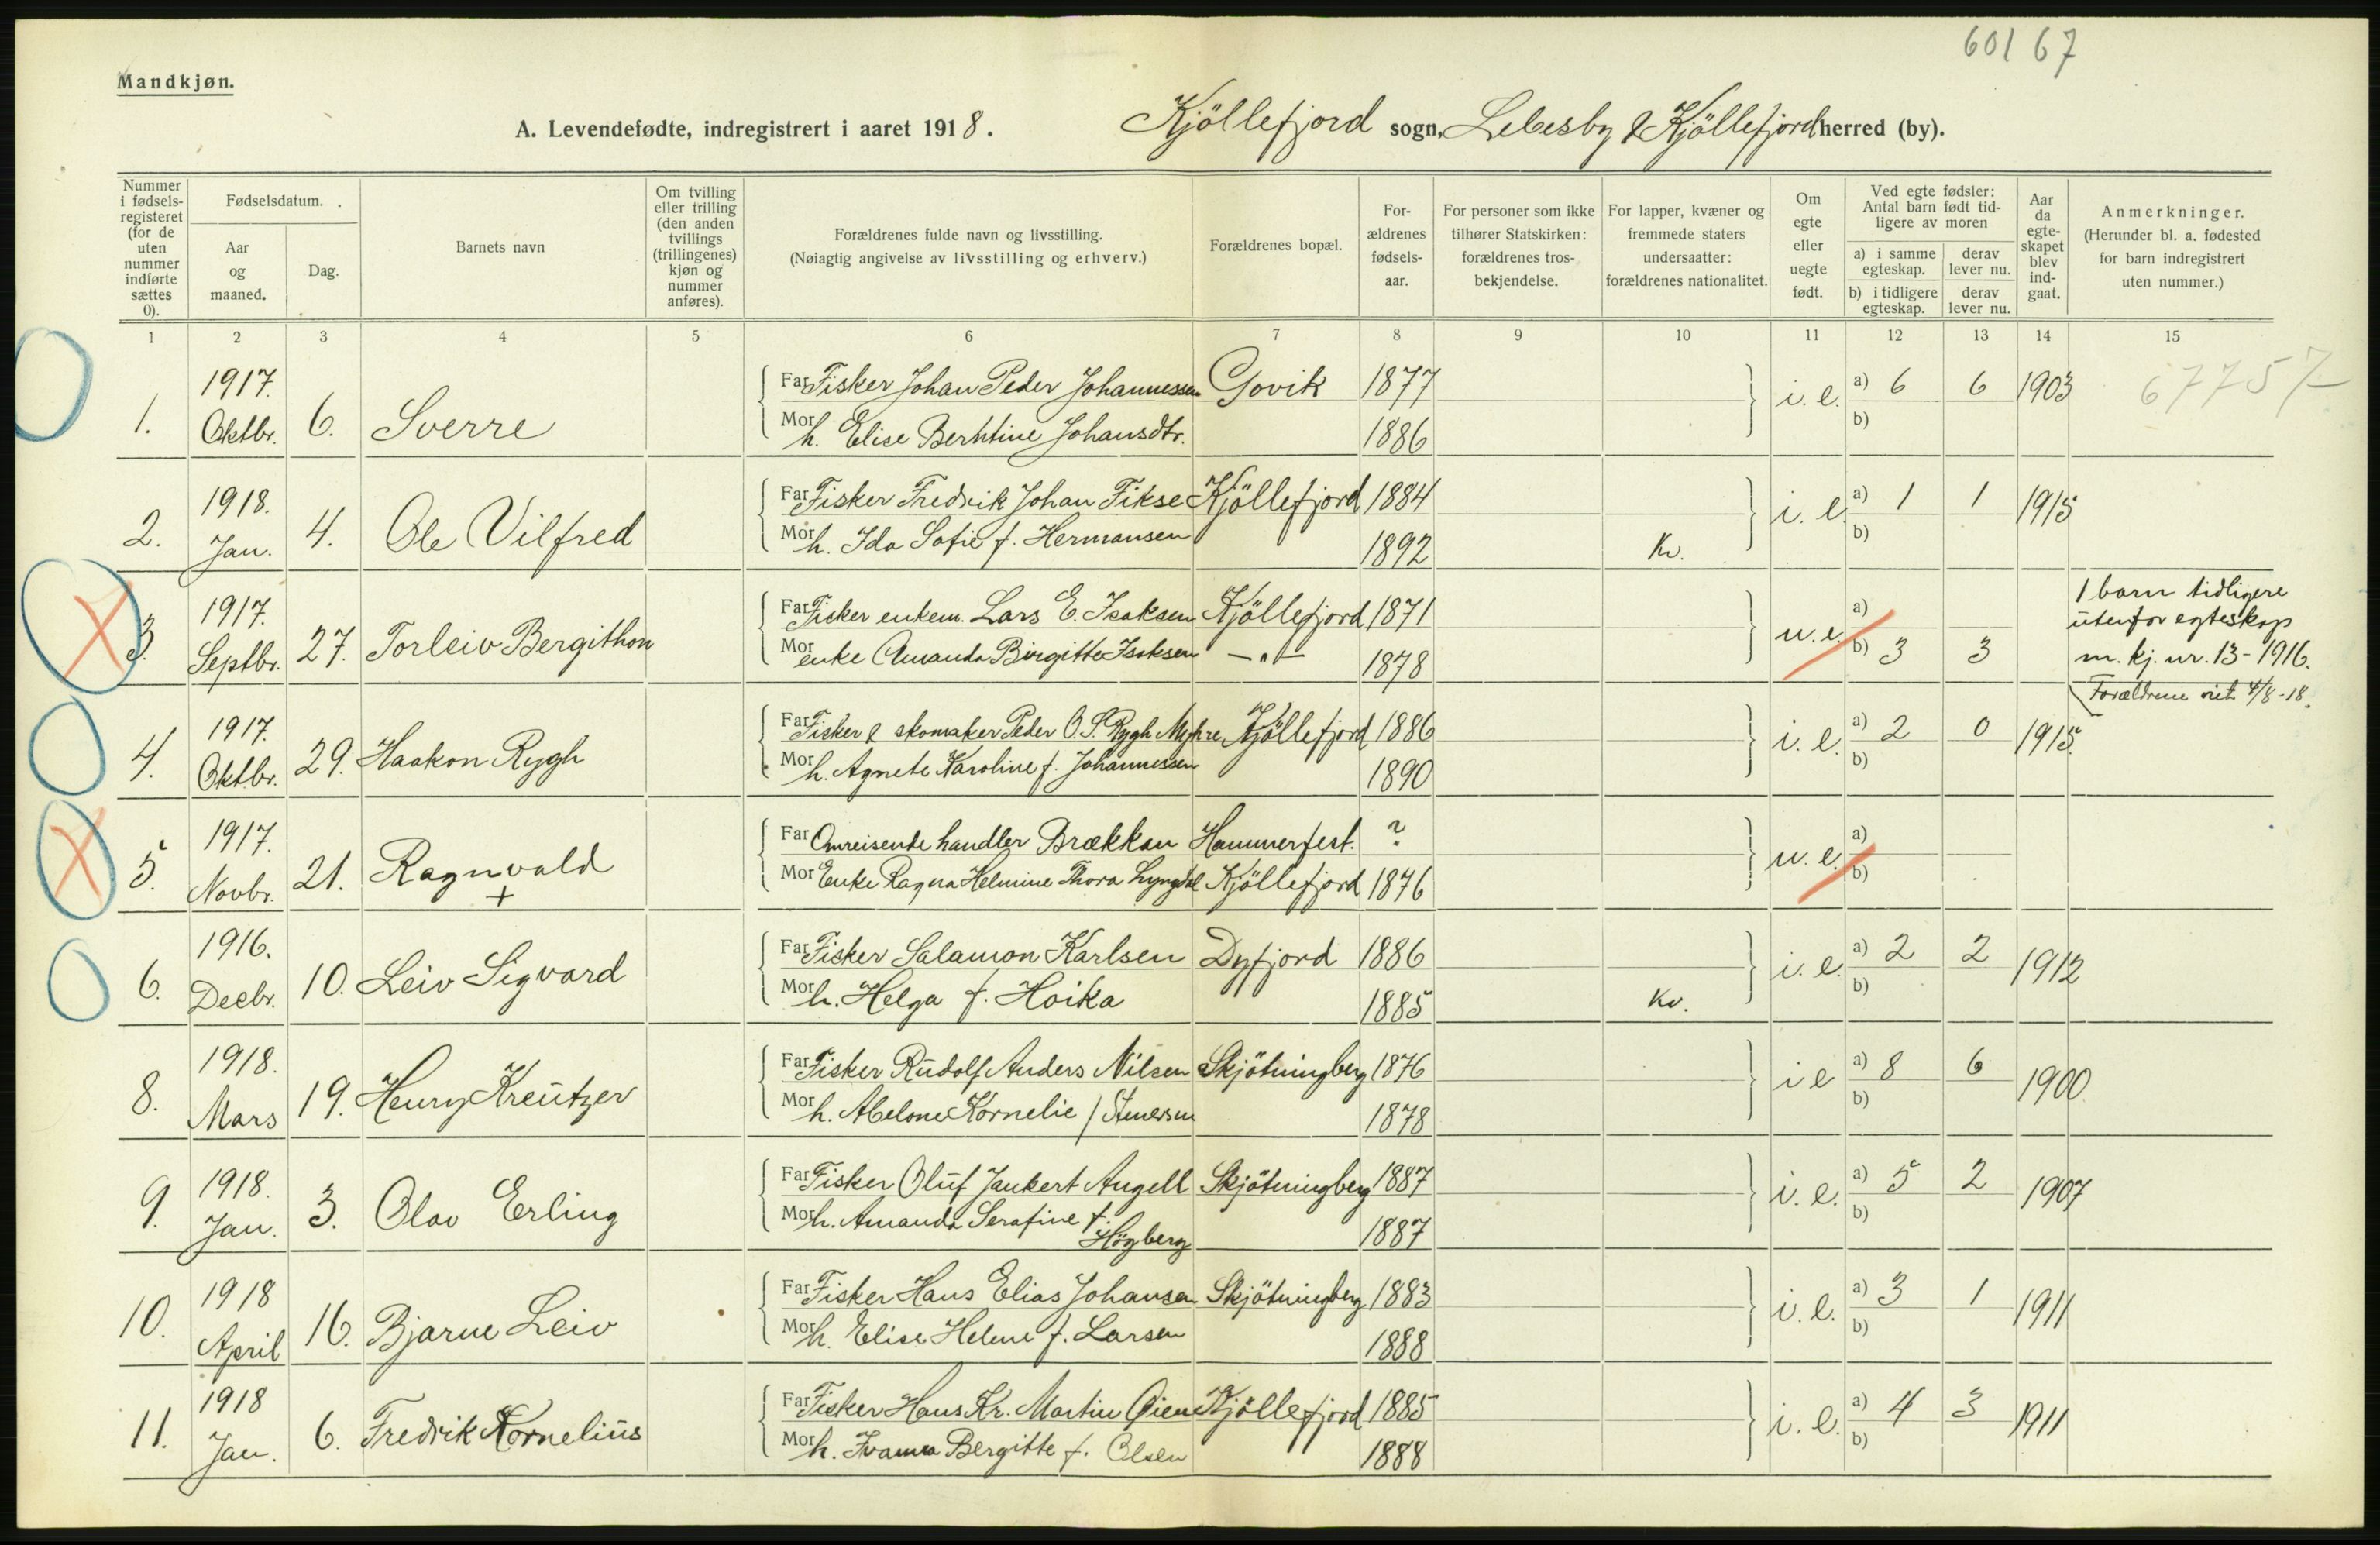 601 67
Mandkjøn.
A. Levendefødte, indregistrert i aaret 1918. Kjöllefjord sogn, Lebesby & Kjöllefjord herred (by).
Nummer i fødselsregisteret (for de uten nummer indførte sættes 0). Fødselsdatum. Aar og maaned. Dag. Barnets navn Om tvilling eller trilling (den anden tvillings (trillingenes) kjøn og nummer anføres). Forældrenes fulde navn og livsstilling. (Nøiagtig angivelse av livsstilling og erhverv.) Forældrenes bopæl. Forældrenes fødselsaar. For personer som ikke tilhører Statskirken: forældrenes trosbekjendelse. For lapper, kvæner og fremmede staters undersaatter: forældrenes nationalitet. Om egte eller uegte født. Ved egte fødsler: Antal barn født tidligere av moren a) i samme egteskap. derav lever nu. b) i tidligere egteskap. derav lever nu. Aar da egteskapet blev indgaat. Anmerkninger. (Herunder bl. a. fødested for barn indregistrert uten nummer.)
1 2 3 4 5 6 7 8 9 10 11 12 13 14 15
1. 1917. Oktbr. 6. Sverre Far Fisker Johan Peder Johannessen Govik 1877 i.e. a) 6 6 1903 67757
Mor h. Elise Berhtine Johansdtr. 1886 b)
2. 1918. Jan. 4. Ole Vilfred Far Fisker Fredrik Johan Fikse Kjöllefjord 1884 i.e. a) 1 1 1915
Mor h. Ida Sofie f. Hermansen 1892 Kv. b)
3. 1917. Septbr. 27. Torleiv Bergithon Far Fisker enkem. Lars E. Isaksen Kjöllefjord 1871 u.e. a) 1 barn tidligere utenfor egteskap
Mor enke Amanda Birgitte Isaksen —"— 1878 b) 3 3 m. kj. nr. 13-1916.
Forældrene viet 4/8-18.
4. 1917. Oktbr. 29. Haakon Rygh Far Fisker & skomaker Peder O. S. Rygh Myhre Kjöllefjord 1886 i.e. a) 2 0 1915
Mor h. Agnete Karoline f. Johannessen 1890 b)
5. 1917. Novbr. 21. Ragnvald + Far Omreisende handler Brækkan Hammerfest. ? u.e. a)
Mor Enke Ragna Helmine Thora Lyngdal Kjöllefjord 1876 b)
6. 1916. Decbr. 10. Leiv Sigvard Far Fisker Salamon Karlsen Dyfjord 1886 i.e. a) 2 2 1912
Mor h. Helga f. Hoika 1885 Kv. b)
8. 1918. Mars 19. Henry Kreutzer Far Fisker Rudolf Anders Nilsen Skjötningberg 1876 i e a) 8 6 1900
Mor h. Abelone Kornelie f Stenersen 1878 b)
9. 1918. Jan. 3. Olav Erling Far Fisker Oluf Jankert Angell Skjötningberg 1887 i.e. a) 5 2 1907
Mor h. Amanda Serafine f. Högberg 1887 b)
10. 1918 April 16. Bjarne Leiv Far Fisker Hans Elias Johansen Skjötningberg 1883 i.e. a) 3 1 1911
Mor h. Elise Helene f. Larsen 1888 b)
11. 1918 Jan. 6. Fredrik Kornelius Far Fisker Hans Kr. Martin Øien Kjöllefjord 1885 i.e. a) 4 3 1911
Mor h. Ivanna Bergitte f. Olsen 1888 b)